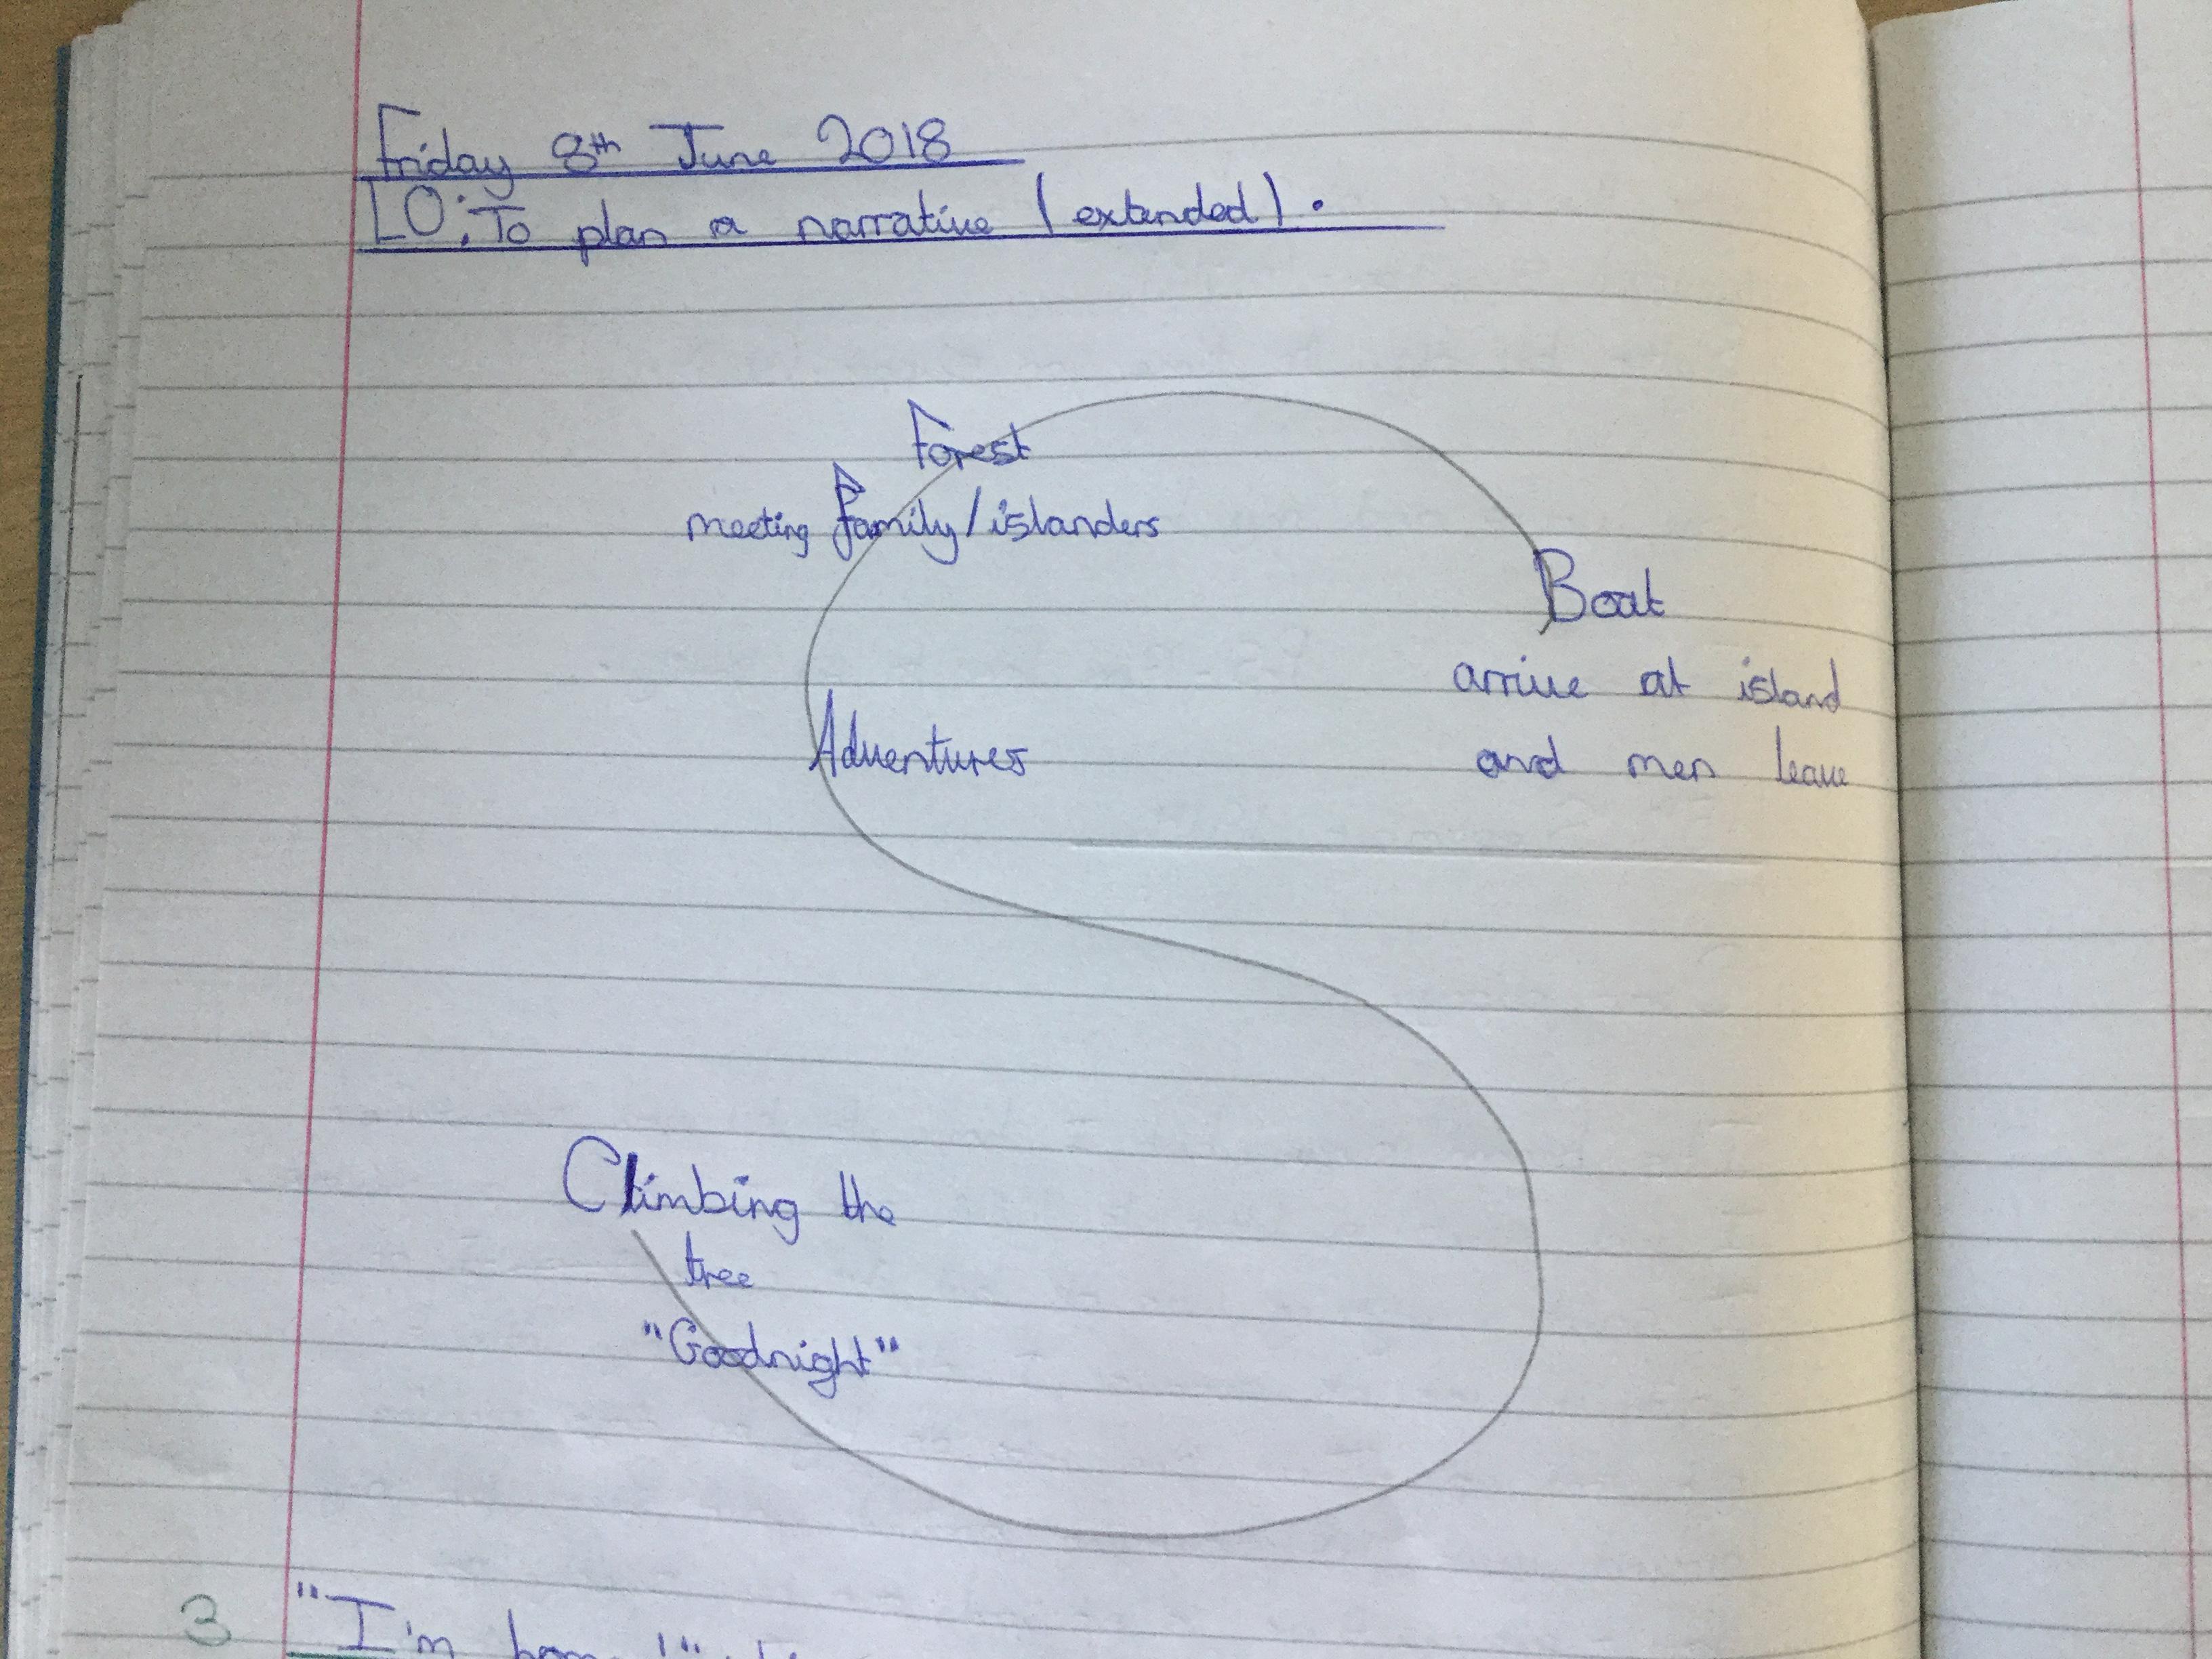 Friday 8th June 2018
LO: To plan a narrative (extended).
Forest
meeting family/islanders
Boat
arrive at island
and men leave
Adventures
Climbing the
tree
"Goodnight"
3
"I'm